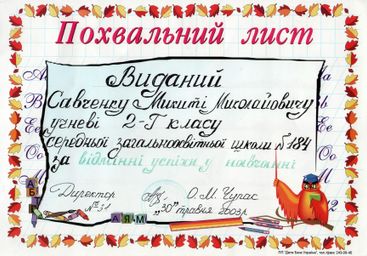 Похвальний лист
Виданий
Савченку Микиті Миколайовичу
учневі 2-Г класу
середньої загальноосвітньої школи №184
за відмінні успіхи у навчанні
Директор О.М. Чупас
„30" травня 2003р.